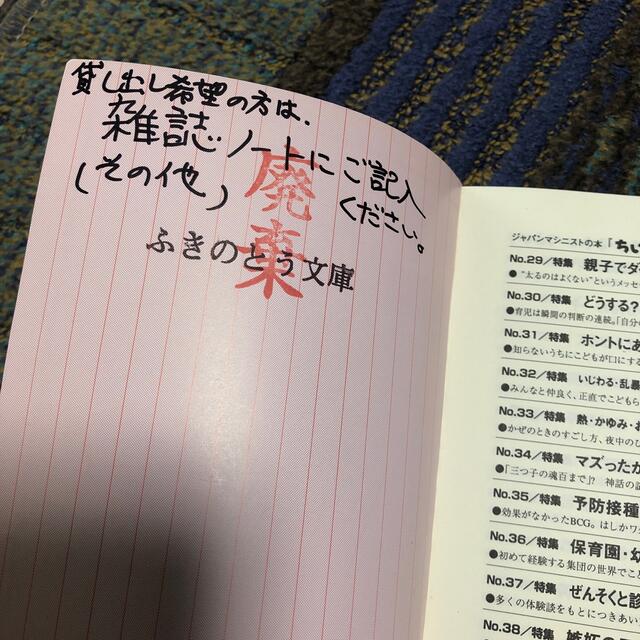 貸し出し希望の方は、
雑誌ノートにご記入
(その他) ください。
廃棄
ふきのとう文庫
ジャパンマシニストの本「ちい
No.29/特集 親子でダ
●“太るのはよくない”というメッセ
No.30/特集 どうする?
●育児は瞬間の判断の連続。「自分の
No.31/特集 ホントにあ
●知らないうちにこどもが口にする
No.32/特集 いじわる・乱暴
●みんなと仲良く、正直でこどもら
No.33/特集 熱・かゆみ・お
●かぜのときのすごし方、夜中のひ
No.34/特集 マズったか
●「三つ子の魂百まで」? 神話の
No.35/特集 予防接種
●効果がなかったBCG。はしかワ
No.36/特集 保育園・幼
●初めて経験する集団の世界でこ
No.37/特集 ぜんそくと診
●多くの体験談をもとにつきあい
No.38/特集 嫉妬の